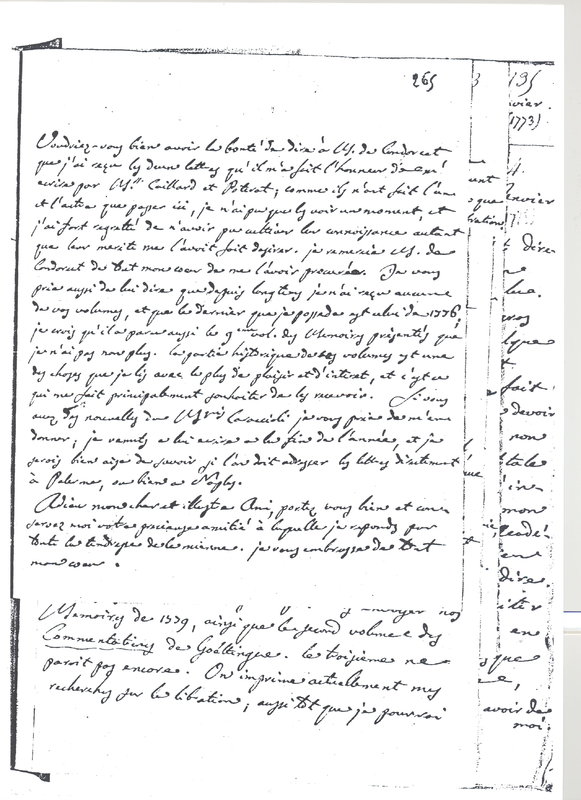 265
Voudriez-vous bien avoir la bonté de dire à M. de Condorcet
que j'ai reçu les deux lettres qu'il m'a fait l'honneur de m'
ecrire par M.rs Caillard et Poterat; comme ils n'ont fait l'un
et l'autre que passer ici, je n'ai pu que les voir un moment, et
j'ai fort regretté de n'avoir pu cultiver leur connoissance autant
que leur merite me l'avoit fait desirer. je remercie M. de
Condorcet de tout mon cœur de me l'avoir procurée. Je vous
prie aussi de lui dire que depuis longtems je n'ai reçu aucun
de vos volumes, et que le dernier que je possede est celui de 1776.
je crois qu'il a paru aussi le 9eme vol. des Memoires présentés que
je n'ai pas non plus. la partie historique de vos volumes est une
des choses que je lis avec le plus de plaisir et d'interet, et c'est ce
qui me fait principalement souhaiter de les recevoir. Si vous
avez des nouvelles du Mquis Caraccioli je vous prie de m'en
donner; je comte lui ecrire a la fin de l'année, et je
serois bien aise de savoir si l'on doit adresser les lettres directement
à Palerme, ou bien a Naples.
Adieu mon cher et illustre Ami, portez vous bien et con-
servez moi votre precieuse amitié à laquelle je reponds par
toute la tendresse de la mienne. je vous embrasse de tout
mon cœur.
envoyer nos
Memoires de 1779, ainsi que le second volume des
Commentationes de Goettingue. le troisieme ne
paroit pas encore. On imprime actuellement mes
recherches sur la libration; aussi tôt que je pourrai
195
(1773)
janvier
dire
fait
devoir
non
mon
dire.
en
que
avoir de
moi.